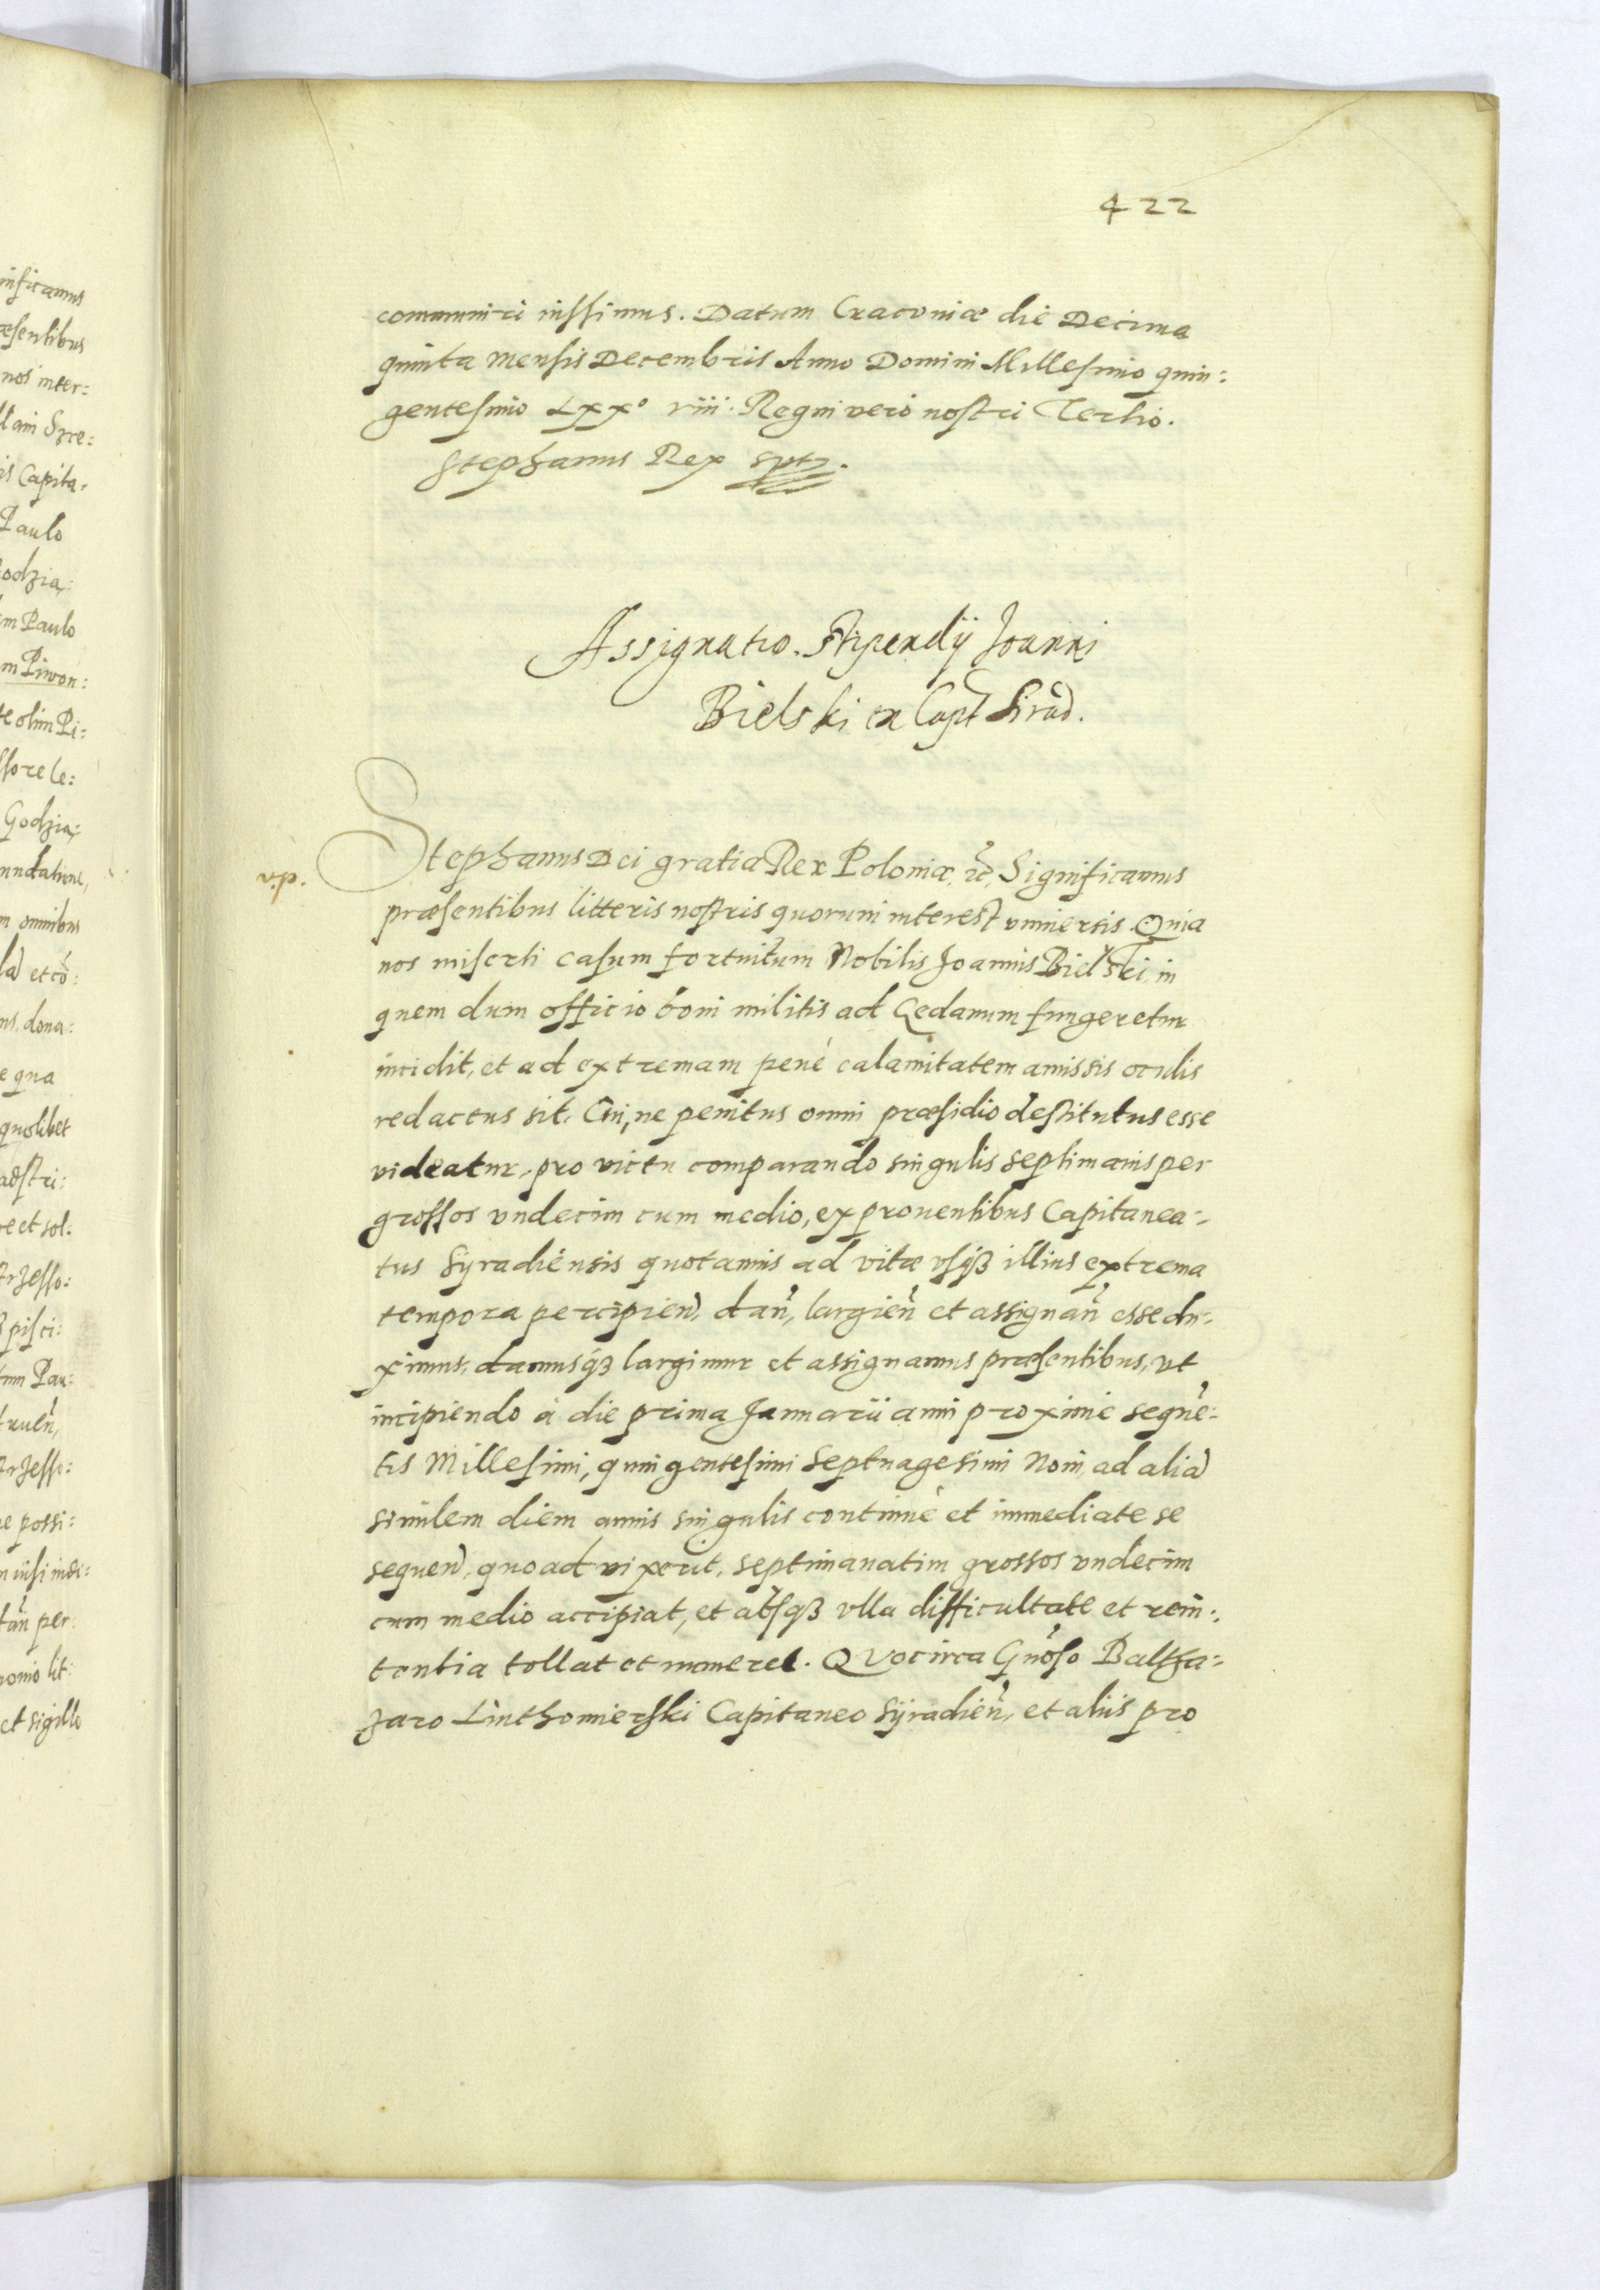 422
communiri iussimus. Datum Cracoviæ die Decima
quinta mensis Decembris Anno Domini Millesimo quin:
gentesimo Lxx° viii. Regni vero nostri Tertio.
Stephanus Rex sptz.
Assignatio. Stipendij Joanni
Bielski ex Capt Sirad.
v.p.
Stephanus Dei gratia Rex Poloniæ, etc. Significamus
præsentibus litteris nostris quorum interest vniuersis. Quia
nos miserti casum fortuitum Nobilis Joannis Bielski, in
quem dum officio boni militis ad Gedanum fungeretur
incidit, et ad extremam penè calamitatem amissis oculis
redactus sit. Cui, ne penitus omni præsidio destitutus esse
videatur, pro victu comparando singulis septimanis per
grossos vndecim cum medio, ex prouentibus Capitanea:
tus Syradiensis quotannis ad vitæ vsq3 illius extrema
tempora percipien), dan̄, largien̄ et assignan̄ esse du:
ximus, damusq3 largimur et assignamus præsentibus, vt
incipiendo à die prima Januarii anni proximè sequē:
tis Millesimi, quingentesimi Septuagesimi Noni, ad alia)
similem diem annis singulis continuè et immediate se
sequen), quoad vixerit, septimanatim grossos vndecim
cum medio accipiat, et absq3 vlla difficultate et reni:
tentia tollat et
Quocirca Gnoso Baltha:
zaro Linthomierski Capitaneo Syradien̄, et aliis pro
nificamus
æsentibus
nos inter:
is Capita:
Paulo
odzia:
m Paulo
m Piwon:
te olim Pi:
ssore le:
Godzia:
m omnibus
la) et cō:
ns, dona:
e qua
quolibet
re et sol:
rzesso:
pisci:
tum Pau:
rzesso:
e possi:
tan̄ per
et sigillo